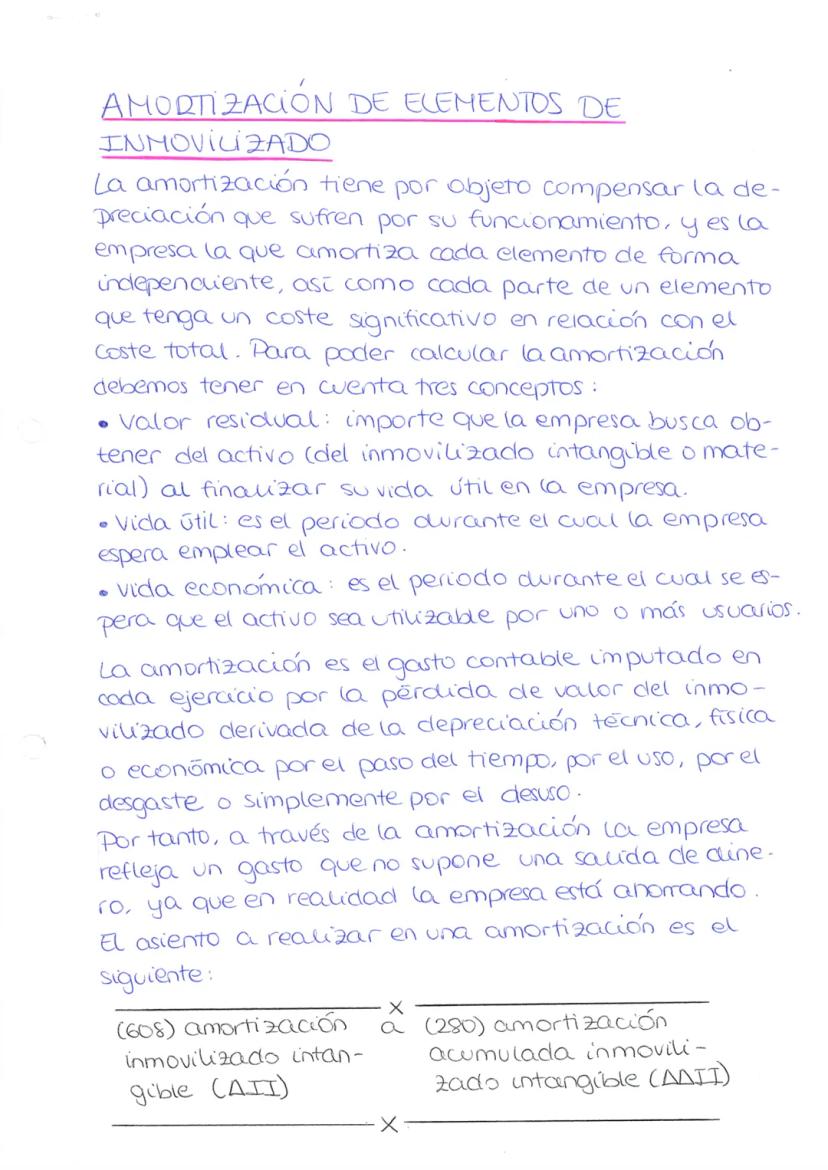 AMORTIZACIÓN DE ELEMENTOS DE
INMOVILIZADO
La amortización tiene por objeto compensar la de-
preciación que sufren por su funcionamiento, y es la
empresa la que amortiza cada elemento de forma
independiente, así como cada parte de un elemento
que tenga un coste significativo en relación con el
coste total. Para poder calcular la amortización
debemos tener en cuenta tres conceptos:
• Valor residual: importe que la empresa busca ob-
tener del activo (del inmovilizado intangible o mate-
rial) al finalizar su vida útil en la empresa.
• Vida útil: es el periodo durante el cual la empresa
espera emplear el activo.
• Vida económica: es el periodo durante el cual se es-
pera que el activo sea utilizable por uno o más usuarios.
La amortización es el gasto contable imputado en
cada ejercicio por la pérdida de valor del inmo-
vilizado derivada de la depreciación técnica, física
o económica por el paso del tiempo, por el uso, por el
desgaste o simplemente por el desuso.
Por tanto, a través de la amortización la empresa
refleja un gasto que no supone una salida de dine-
ro, ya que en realidad la empresa está ahorrando.
El asiento a realizar en una amortización es el
siguiente:
X
(608) amortización a (280) amortización
inmovilizado intan- acumulada inmovili-
gible (AII) zado intangible (AAII)
X